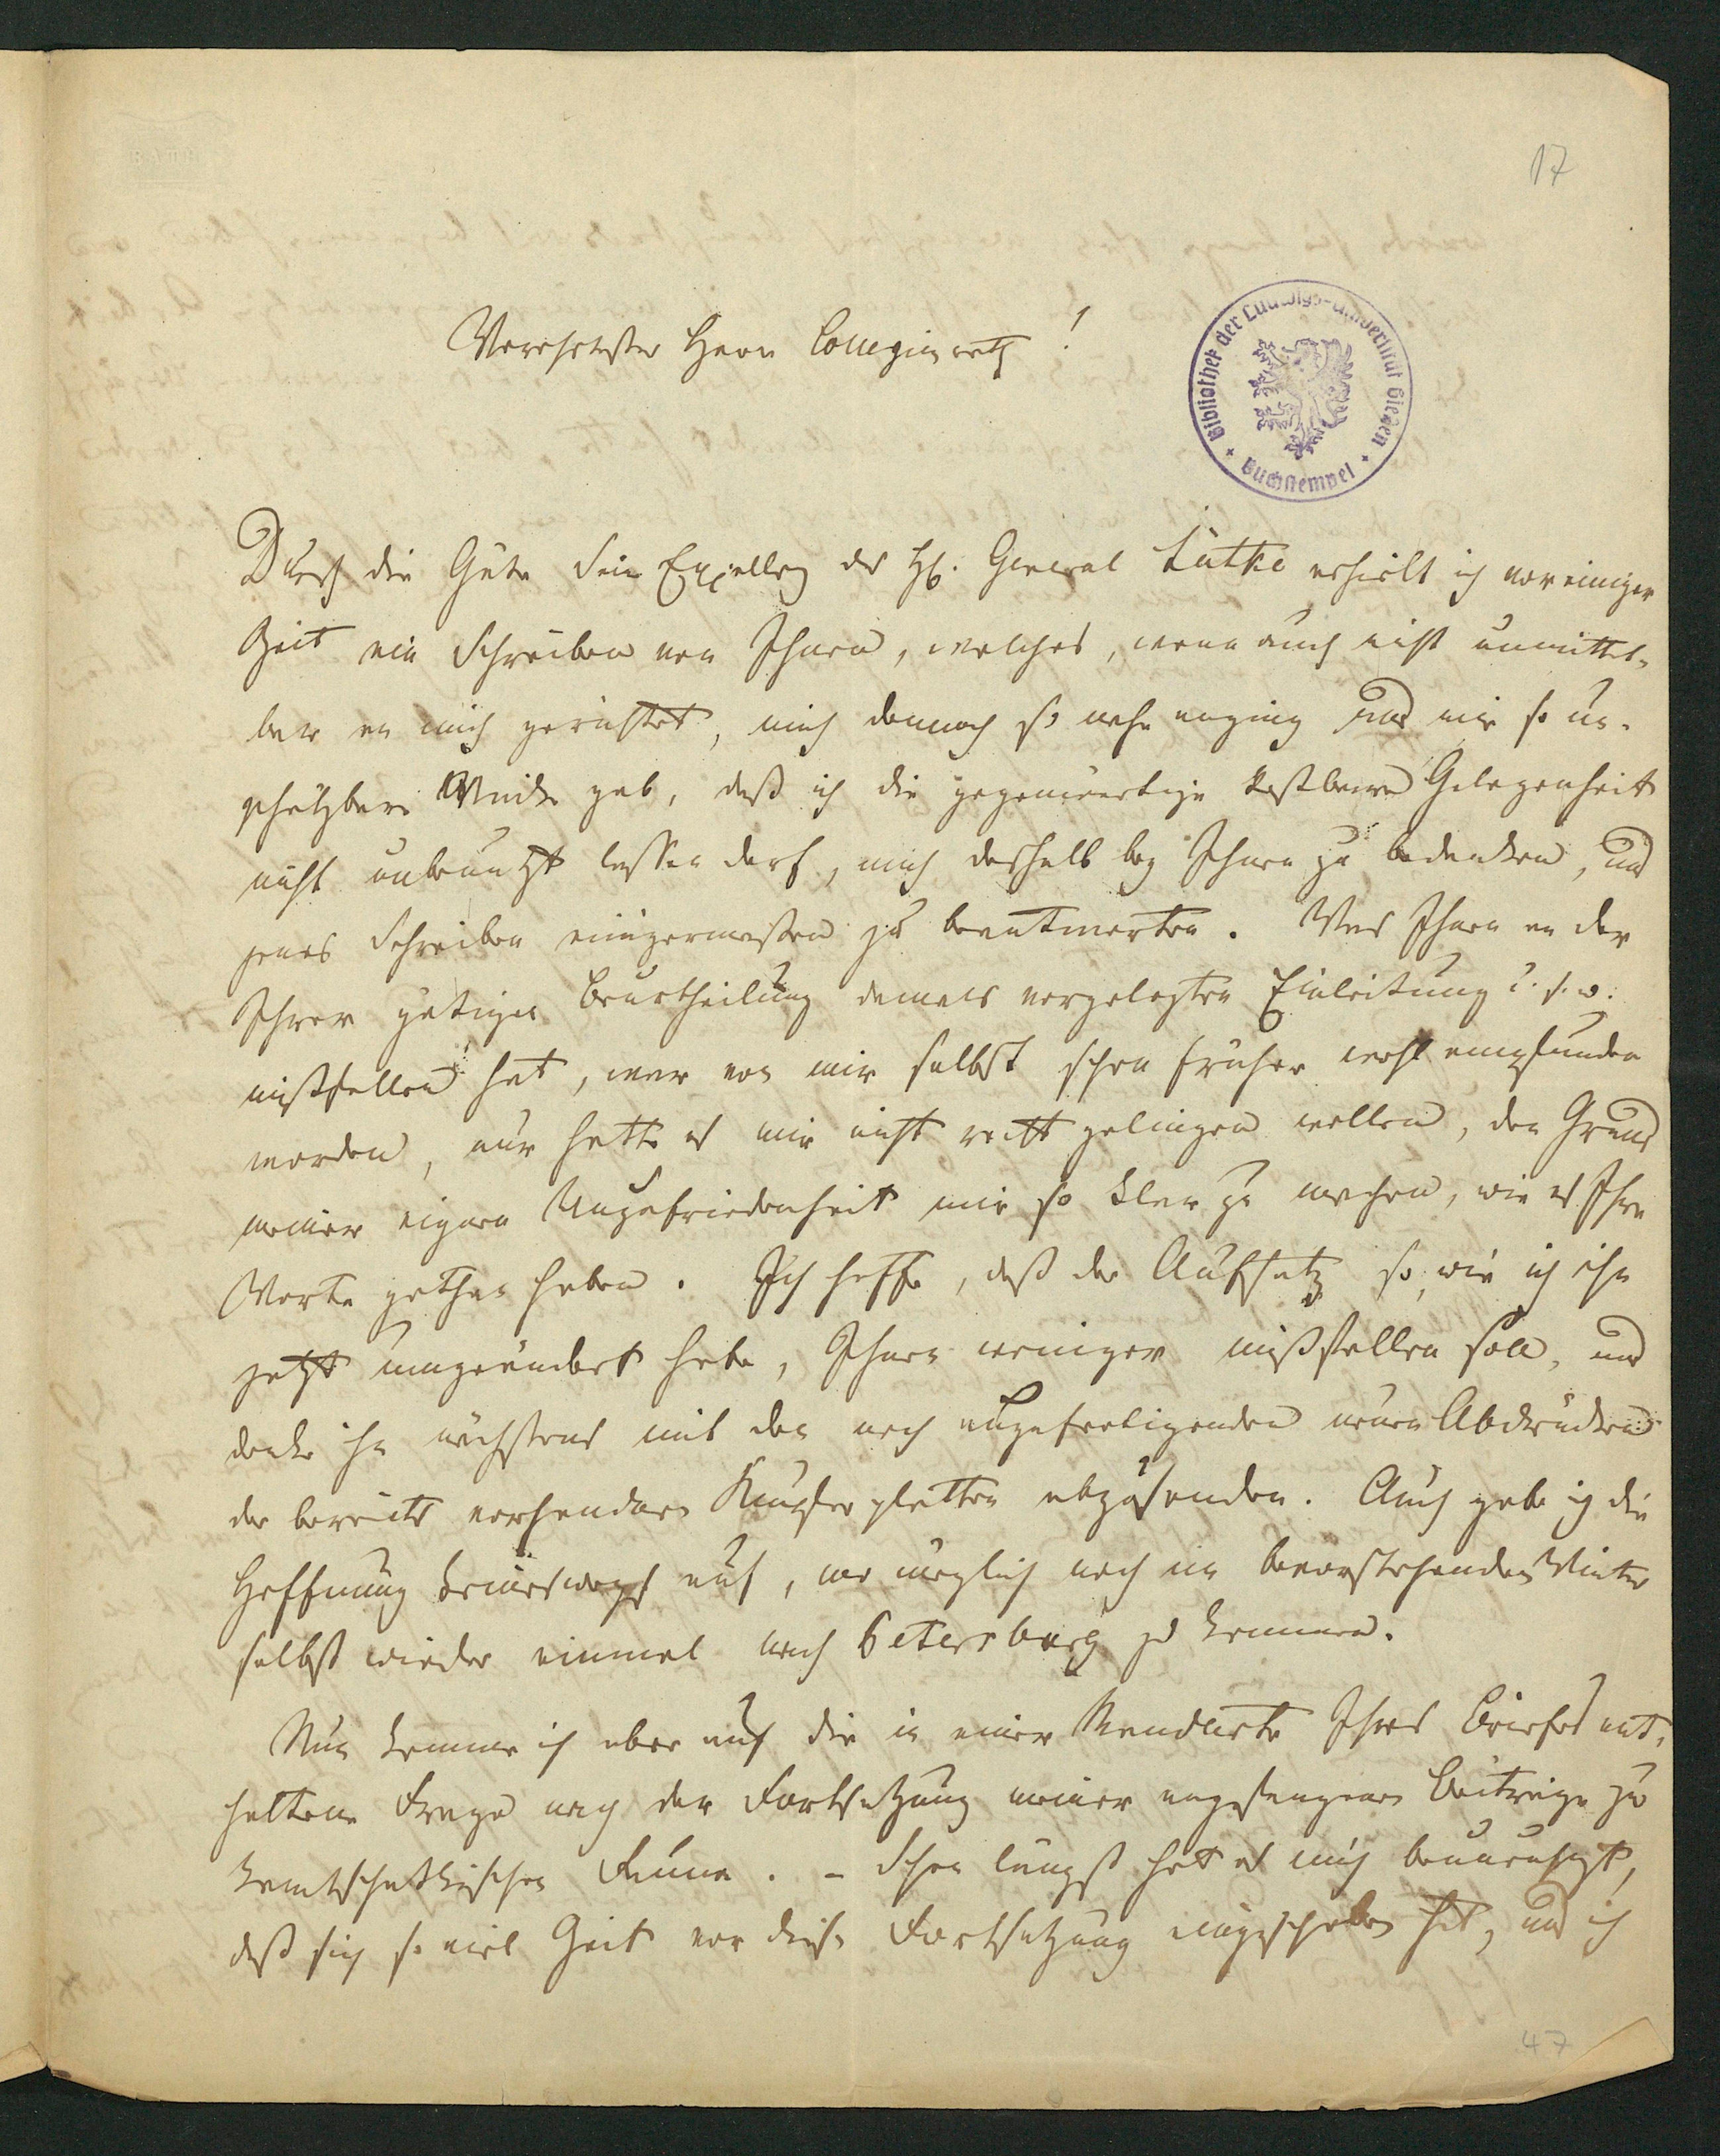 17
Verehrtester Herr Collegienrath!
Bibliothek der Ludwigs-Universität Giessen
Buchstempel
Durch die Güte Seine Excellenz des H. General Lütke erhielt ich vor einiger
Zeit ein Schreiben von Ihnen, welches, wenn auch nicht unmittel-
bar an mich gerichtet, mich dennoch so nahe anging und mir so un-
schätzbare Winke gab, daß ich die gegenwärtige kostbare Gelegenheit
nicht unbenutzt lassen darf, mich deshalb bey Ihnen zu bedanken, und
jenes Schreiben einigermaßen zu beantworten. Was Ihnen an der
Ihrer gütigen Beurtheilung damals vorgelegten Einleitung u. s. w.
mißfallen hat, war von mir selbst schon früher wohl empfunden
worden, nur hatte es mir nicht recht gelingen wollen, den Grund
meiner eignen Unzufriedenheit mir so klar zu machen, wie es Ihre
Worte gethan haben. Ich hoffe, daß der Aufsatz so, wie ich ihn
jetzt umgeändert habe, Ihnen weniger mißfallen soll, und
denke ihn nächstens mit den noch anzufertigenden neuen Abdrücken
der bereits vorhandnen Kupferplatten abzusenden. Auch gebe ich die
Hoffnung keineswegs auf, wo möglich noch im bevorstehenden Winter
selbst wieder einmal nach Petersburg zu kommen.
Nun komme ich aber auf die in einer Randnote Ihres Briefes ent-
haltene Frage nach der Fortsetzung meiner angefangenen Beiträge zur
kamtschatkischen Fauna. – Schon längst hat es mich beunruhigt,
daß sich so viel Zeit vor diese Fortsetzung eingeschoben hat, und ich
47